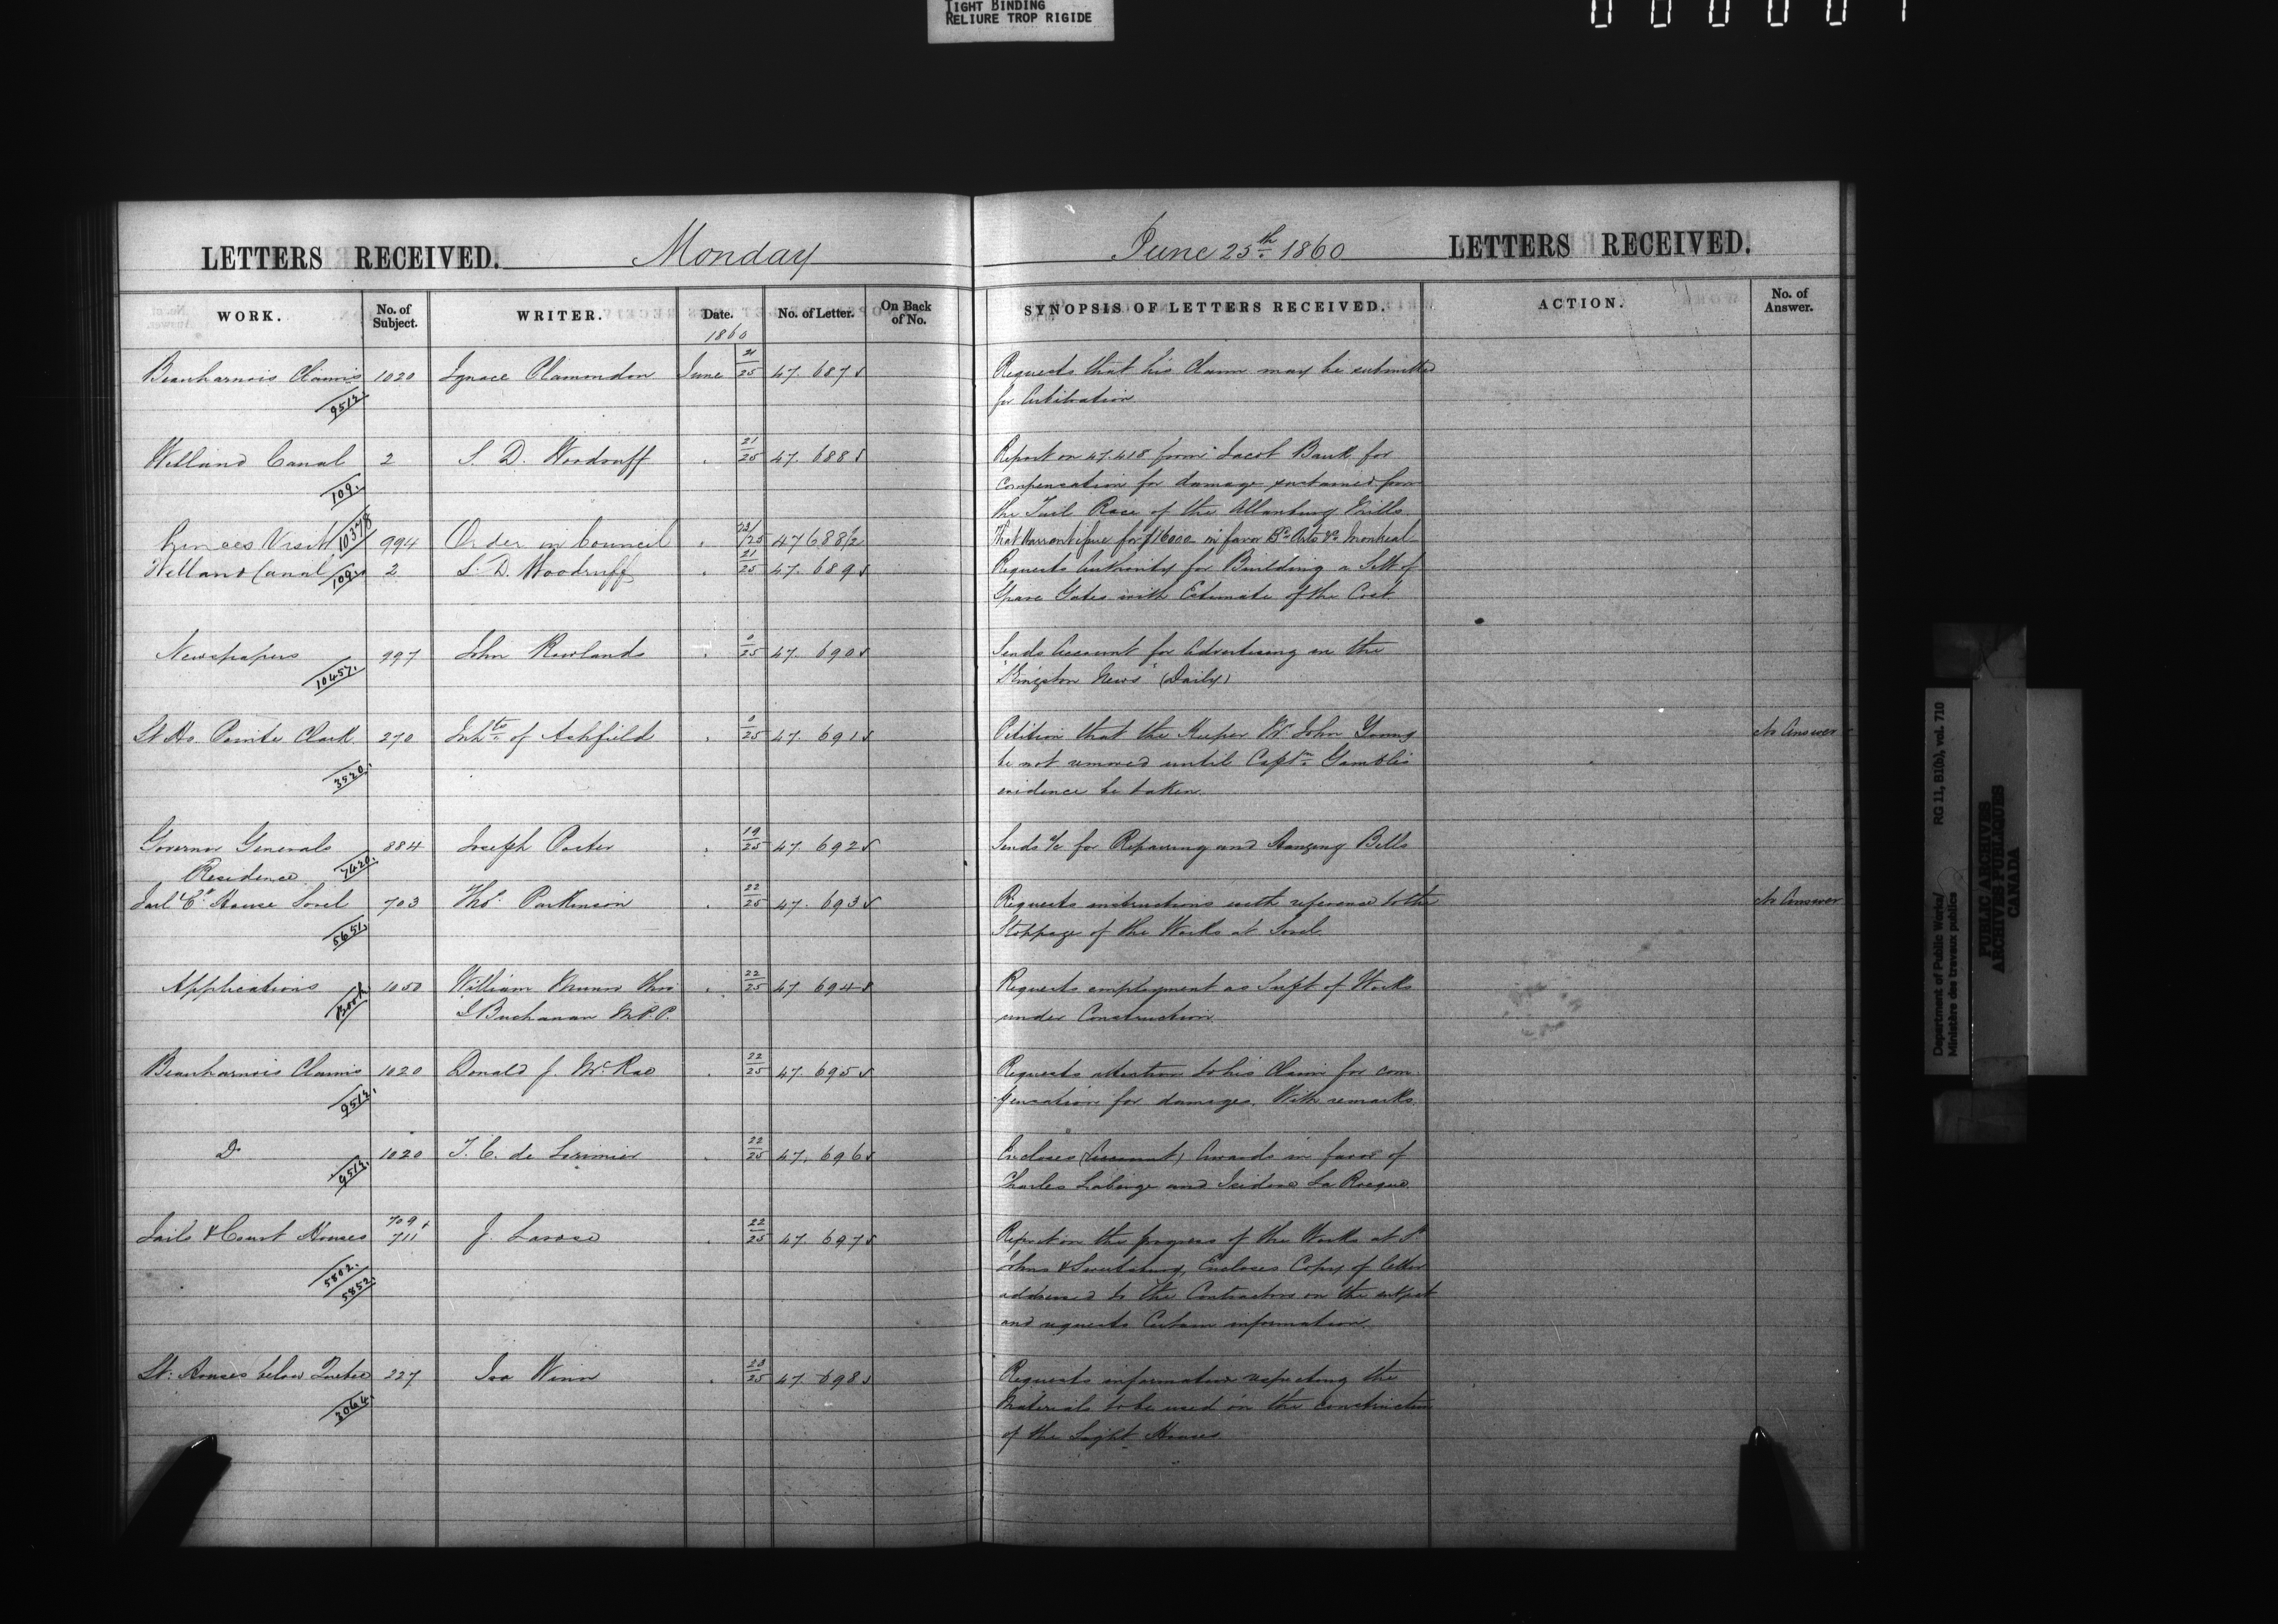 TIGHT BINDING
RELIURE TROP RIGIDE
LETTERS RECEIVED. Monday June 25th 1860 LETTERS RECEIVED.
WORK. No. of Subject. WRITER. Date. No. of Letter. On Back of No. SYNOPSIS OF LETTERS RECEIVED. ACTION. No. of Answer.
1860
Beauharnois Claims 1020 Ignace Clamondon June 21/25 47.687 Requests that his Claim may be submitted
9512 for Arbitration
Welland Canal 2 S. D. Woodruff 21/25 47.688 Report on 47.418 from Jacob Bauk for
109. compensation for damage sustained from
the Tail Race of the Allanburg Mills
Princes Visit 10378 994 Order in Council 23/25 47688½ That Warrant issue for $16000 in favor Bd. Arts &c Montreal
Welland Canal 109. 2 S. D. Woodruff 21/25 47.689 Requests Authority for Building a Sett of
Spare Gates with Estimate of the Cost
Newspapers 997 John Rowlands 0/25 47.690 Sends Account for Advertising in the
10457. "Kingston News" (Daily)
Lt. Ho. Pointe Clark 270 Inhts. of Ashfield 0/25 47.691 Petition that the Keeper Mr. John Young No Answer
3520. be not removed until Captn. Gamble's
evidence be taken.
Governor Generals 884 Joseph Porter 19/25 47.692 Sends a/c for Repairing and Hanging Bells
Residence 7420.
Jail & Ct. House Sorel 703 Thos. Parkinson 22/25 47.693 Requests instructions with reference to the No Answer
5651. Stoppage of the Works at Sorel.
Applications 1050 William Munro Thro 22/25 47 694 Requests employment as Supt of Works
Book I Buchanan M.P.P. under Construction
Beauharnois Claims 1020 Donald J. McRae 22/25 47.695 Requests attention to his Claim for com-
9512. pensation for damages. With remarks.
Do 1020 T. C. de Lorimier 22/25 47.696 Encloses Awards in favor of
9512. Charles Laberge and Isidore La Rocque
Jails & Court Houses 709 & 711 J. Larose 22/25 47.697 Report on the progress of the Works at St.
5802. Johns & Sweetsburg, Encloses Copy of letter
5852. addressed to the Contractors on the subject
and requests Certain information.
Lt. Houses below Quebec 227 Ira Winn 23/25 47.698 Requests information respecting the
3064. Materials to be used in the construction
of the Light Houses
Department of Public Works/
Ministère des travaux publics
RG 11, B1(b), vol. 710
PUBLIC ARCHIVES
ARCHIVES PUBLIQUES
CANADA